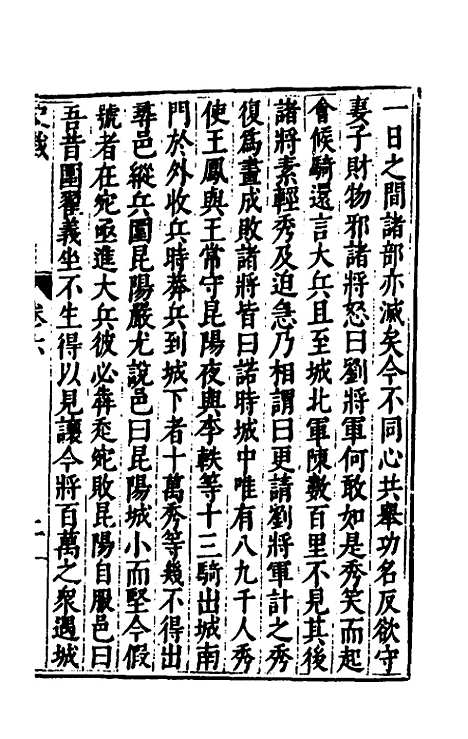 一日之間諸部亦滅矣今不同心共舉功名反欲守
妻子財物邪諸將怒曰劉將軍何敢如是秀笑而起
會候騎還言大兵且至城北軍陳數百里不見其後
諸將素輕秀及迫急乃相謂曰更請劉將軍計之秀
復爲畫成敗諸將皆曰諾時城中唯有八九千人秀
使王鳳與王常守昆陽夜與李軼等十三騎出城南
門於外收兵時莽兵到城下者十萬秀等幾不得出
尋邑縱兵圍昆陽嚴尤說邑曰昆陽城小而堅今假
號者在宛亟進大兵彼必犇走宛敗昆陽自服邑曰
吾昔圍翟義坐不生得以見讓今將百萬之衆遇城
卷六